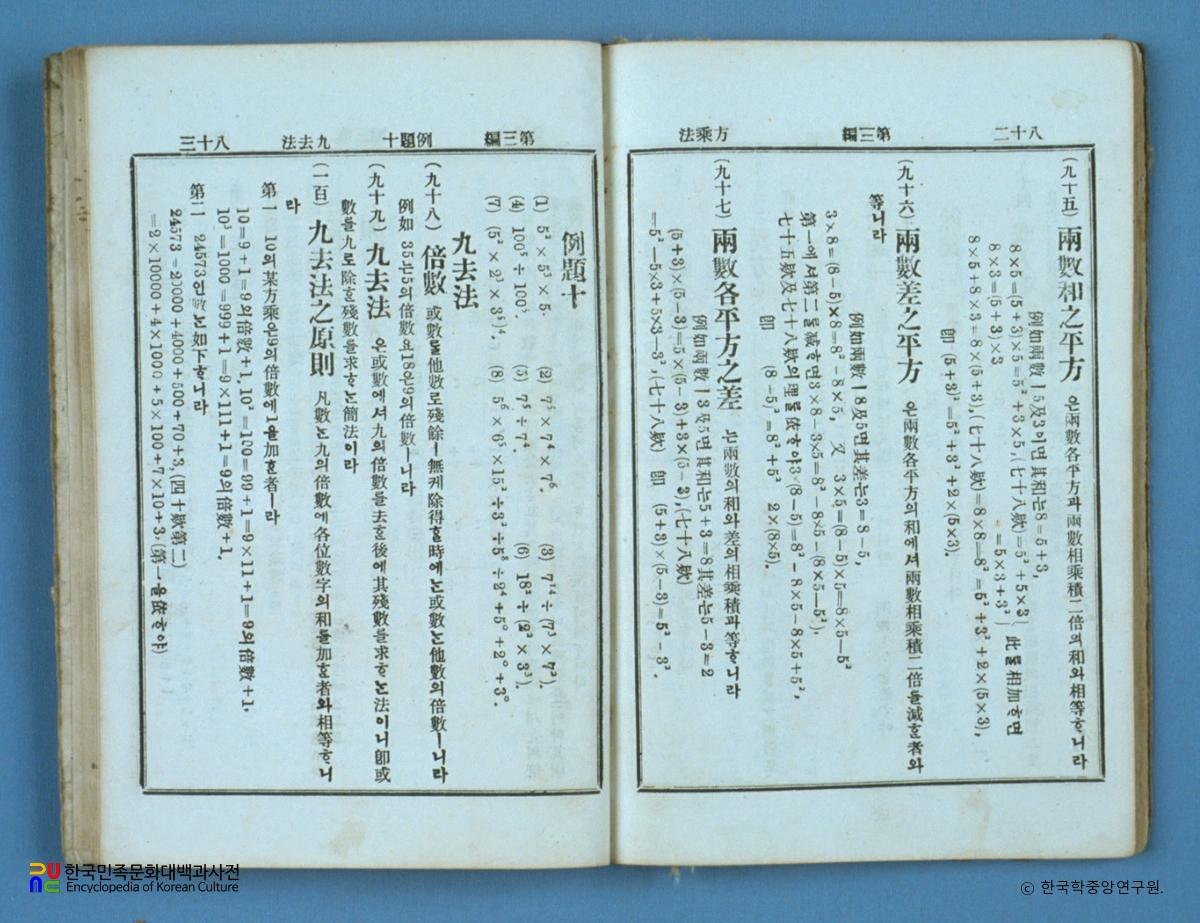 八十二 第三編 方乘法
(九十五) 兩數和之平方 은兩數各平方과兩數相乘積二倍의和와相等ᄒᆞ니라
例如兩數ㅣ5及3이면其和는8=5+3,
8×5=(5+3)×5=5²+3×5,(七十八欵)=5²+5×3
8×3=(5+3)×3 =5×3+3²
此를相加ᄒᆞ면
8×5+8×3=8×(5+3),(七十八欵)=8×8=8²=5²+3²+2×(5×3),
卽 (5+3)²=5²+3²+2×(5×3).
(九十六) 兩數差之平方 은兩數各平方의和에셔兩數相乘積二倍를減ᄒᆞᆫ者와
等니라
例如兩數ㅣ8及5면其差는3=8-5,
3×8=(8-5)×8=8²-8×5, 又 3×5=(8-5)×5=8×5-5²
第一에셔第二를減ᄒᆞ면3×8-3×5=8²-8×5-(8×5-5²),
七十五欵及七十八欵의理를依ᄒᆞ야3×(8-5)=8²-8×5-8×5+5²,
卽 (8-5)²=8²+5² 2×(8×5).
(九十七) 兩數各平方之差 는兩數의和와差의相乘積과等ᄒᆞ니라
例如兩數ㅣ3及5면其和는5+3=8其差는5-3=2
(5+3)×(5-3)=5×(5-3)+3×(5-3),(七十八欵)
=5²-5×3+5×3-3²,(七十八欵) 卽 (5+3)×(5-3)=5²-3².
第三編 例題十 九去法 八十三
例題十
(1) 5²×5³×5. (2) 7⁵×7⁴×7⁶. (3) 7¹⁴÷(7³×7²).
(4) 100⁵÷100³. (5) 7⁵÷7⁴. (6) 18²÷(2²×3³).
(7) (5²×2³×3⁵)⁴. (8) 5⁶×6⁵×15²÷3²÷5⁸÷2⁴+5⁰+2⁰+3⁰.
九去法
(九十八) 倍數 或數를他數로殘餘ㅣ無케除得ᄒᆞᆯ時에는或數는他數의倍數ㅣ니라
例如 35는5의倍數요18은9의倍數ㅣ니라
(九十九) 九去法 은或數에셔九의倍數를去ᄒᆞᆫ後에其殘數를求ᄒᆞ는法이니卽或
數를九로除ᄒᆞᆫ殘數를求ᄒᆞ는簡法이라
(一百) 九去法之原則 凡數는九의倍數에各位數字의和를加ᄒᆞᆫ者와相等ᄒᆞ니
라
第一 10의某方乘은9의倍數에一을加ᄒᆞᆫ者ㅣ라
10=9+1=9의倍數+1,10²=100=99+1=9×11+1=9의倍數+1.
10³=1000=999+1=9×111+1=9의倍數+1.
第二 24573인數는如下ᄒᆞ니라
24573=20000+4000+500+70+3,(四十欵第二)
=2×10000+4×1000+5×100+7×10+3,(第一을依ᄒᆞ야)
한국민족문화대백과사전
Encyclopedia of Korean Culture
© 한국학중앙연구원.